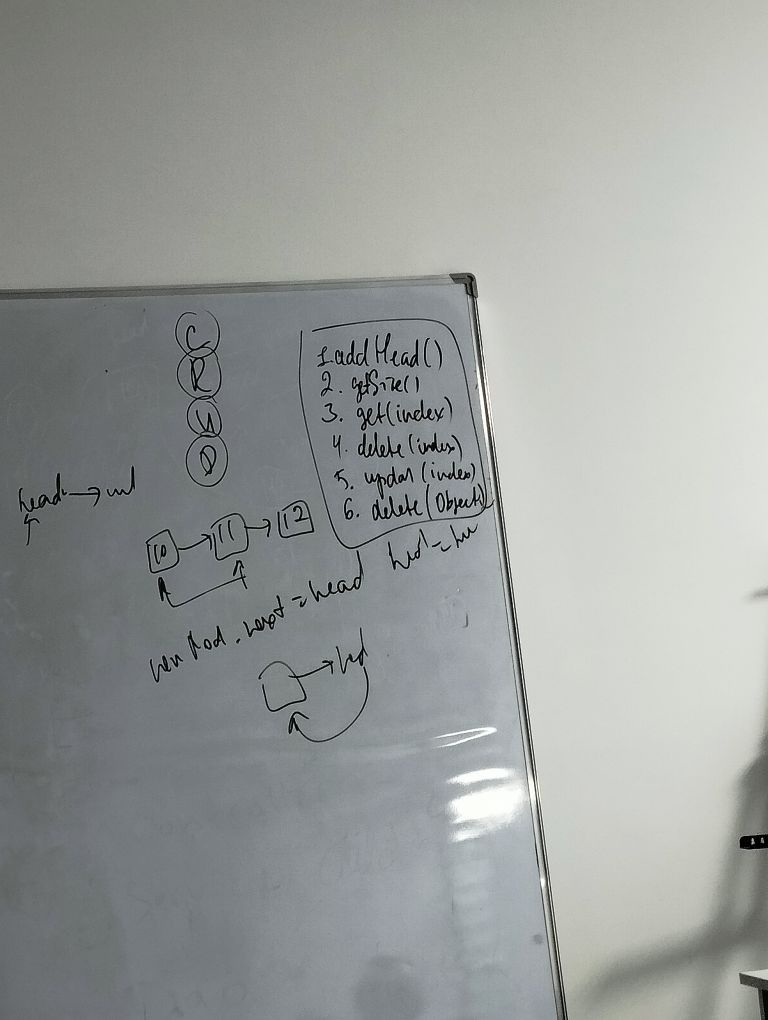 C
R
U
D
1. addHead()
2. getSize()
3. get(index)
4. delete(index)
5. updat(index)
6. delete(Object)
head → 
10 → 11 → 12
.next = head